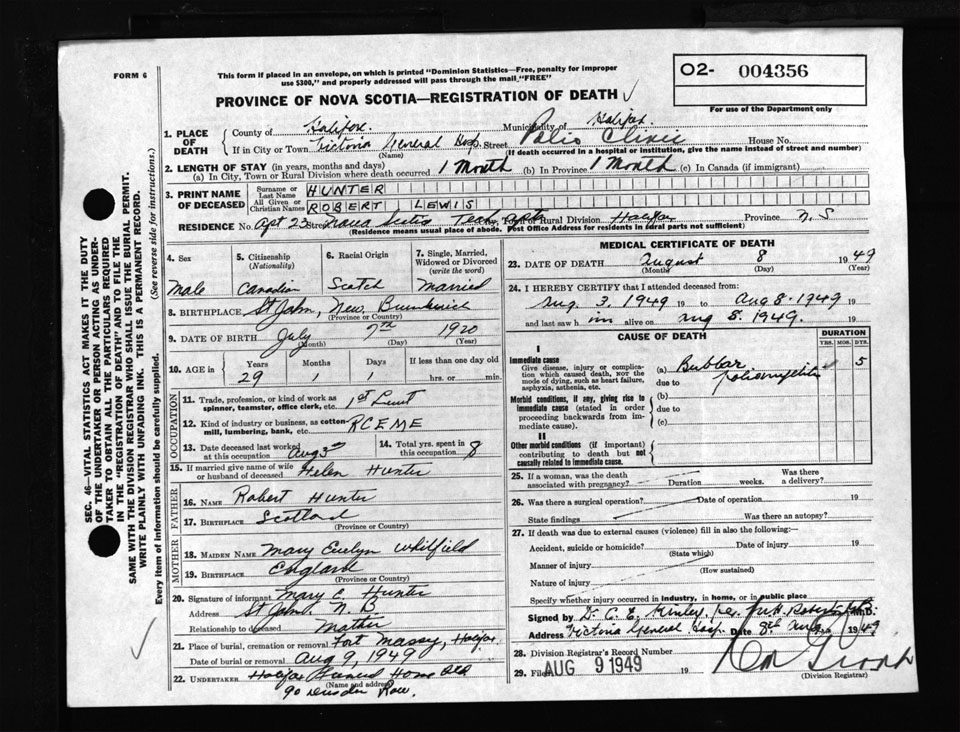 FORM 6
This form if placed in an envelope, on which is printed "Dominion Statistics—Free, penalty for improper
use $300," and properly addressed will pass through the mail "FREE"
O2- 004356
For use of the Department only
PROVINCE OF NOVA SCOTIA—REGISTRATION OF DEATH
1. PLACE OF DEATH
County of Halifax Municipality of Halifax
If in City or Town Victoria General Hosp. Street Polio Clinic House No.
(Name) (If death occurred in a hospital or institution, give the name instead of street and number)
2. LENGTH OF STAY (in years, months and days)
(a) In City, Town or Rural Division where death occurred 1 Month (b) In Province 1 Month (c) In Canada (if immigrant)
3. PRINT NAME OF DECEASED
Surname or Last Name HUNTER
All Given or Christian Names ROBERT LEWIS
RESIDENCE No. Apt 23 Street Town or Rural Division Halifax Province N S
(Residence means usual place of abode. Post Office Address for residents in rural parts not sufficient)
4. Sex
Male
5. Citizenship (Nationality)
Canadian
6. Racial Origin
Scotch
7. Single, Married, Widowed or Divorced (write the word)
Married
8. BIRTHPLACE St John, New Brunswick
(Province or Country)
9. DATE OF BIRTH July 7th 1920
(Month) (Day) (Year)
10. AGE in Years Months Days If less than one day old
29 1 1 hrs. or min.
OCCUPATION
11. Trade, profession, or kind of work as spinner, teamster, office clerk, etc. 1st Lieut
12. Kind of industry or business, as cotton-mill, lumbering, bank, etc. RCEME
13. Date deceased last worked at this occupation Aug 3
14. Total yrs. spent in this occupation 8
15. If married give name of wife or husband of deceased Helen Hunter
FATHER
16. Name Robert Hunter
17. Birthplace Scotland
(Province or Country)
MOTHER
18. MAIDEN NAME Mary Evelyn Whilfield
19. BIRTHPLACE England
(Province or Country)
20. Signature of informant Mary E. Hunter
Address St John. N B
Relationship to deceased Mother
21. Place of burial, cremation or removal Fort Massey, Halifax
Date of burial or removal Aug 9, 1949
22. UNDERTAKER Halifax Funeral Home Ltd
(Name and address)
90 Row.
MEDICAL CERTIFICATE OF DEATH
23. DATE OF DEATH August 8 1949
(Month) (Day) (Year)
24. I HEREBY CERTIFY that I attended deceased from:
Aug. 3. 1949 19 to Aug 8. 1949 19
and last saw him alive on Aug 8. 1949. 19
CAUSE OF DEATH
DURATION
YRS. MOS. DYS.
I
Immediate cause
Give disease, injury or complication which caused death, not the mode of dying, such as heart failure, asphyxia, asthenia, etc.
(a) Bulbar poliomyelitis 5
due to
Morbid conditions, if any, giving rise to immediate cause (stated in order proceeding backwards from immediate cause).
(b)
due to
(c)
II
Other morbid conditions (if important) contributing to death but not causally related to immediate cause.
25. If a woman, was the death associated with pregnancy? Duration weeks. Was there a delivery?
26. Was there a surgical operation? Date of operation 19
State findings Was there an autopsy?
27. If death was due to external causes (violence) fill in also the following:—
Accident, suicide or homicide? Date of injury 19
(State which)
Manner of injury
(How sustained)
Nature of injury
Specify whether injury occurred in industry, in home, or in public place
Signed by Dr. C. E. Kinley, M.D.
Address Victoria General Hosp. Date 8th Aug 1949
28. Division Registrar's Record Number
29. Filed AUG 9 1949 19
(Division Registrar)
SEC. 46—VITAL STATISTICS ACT MAKES IT THE DUTY
OF THE UNDERTAKER OR PERSON ACTING AS UNDER-
TAKER TO OBTAIN ALL THE PARTICULARS REQUIRED
IN THE "REGISTRATION OF DEATH" AND TO FILE THE
SAME WITH THE DIVISION REGISTRAR WHO SHALL ISSUE THE BURIAL PERMIT.
WRITE PLAINLY WITH UNFADING INK. THIS IS A PERMANENT RECORD.
Every item of information should be carefully supplied. (See reverse side for instructions.)